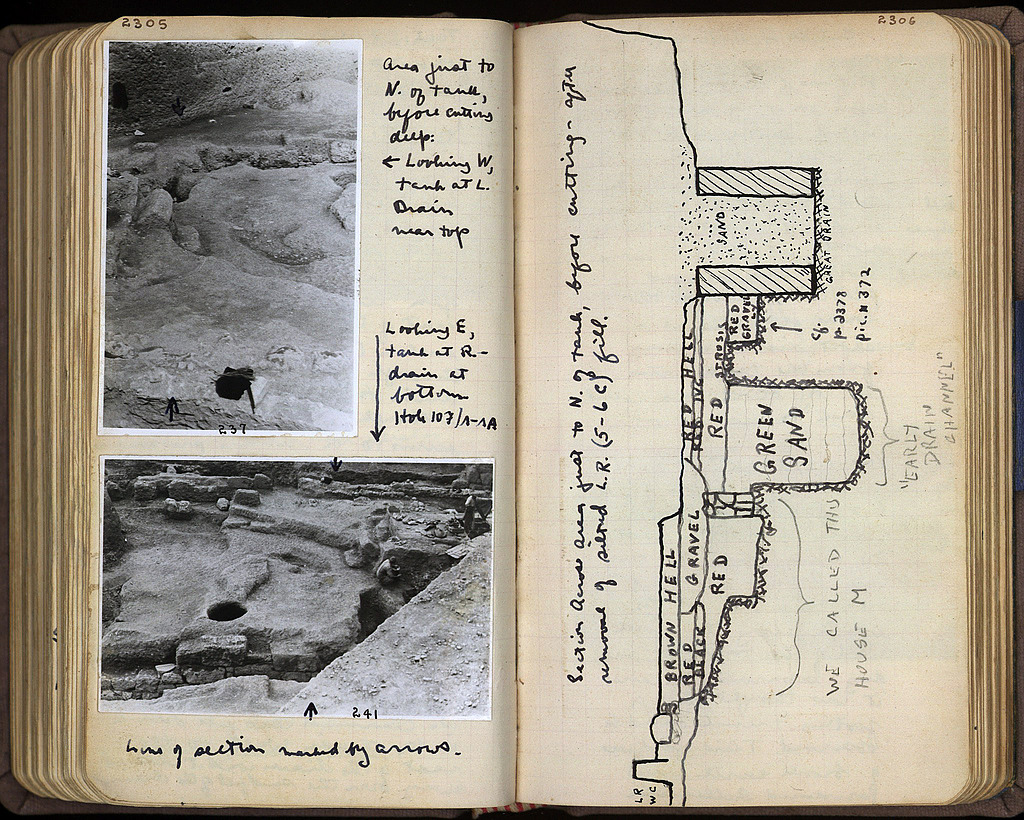 2305
Area just to
N. of tank,
before cutting
deep:
← Looking W,
tank at L.
Drain
near top
237
Looking E,
tank at R-
drain at
bottom
Hole 107/Λ-ΛΑ
241
Line of section marked by arrows.
2306
Section across area just to N. of tank, before cutting - after
removal of silted L.R. (5-6 C) fill.
SAND
GREAT DRAIN
RED
GRAVEL
cf.
p. 2378
pic. # 372
RED HELL
RED
GREEN
SAND
"EARLY
DRAIN
CHANNEL"
BROWN HELL
RED GRAVEL
BLACK
RED
WE CALLED THIS
HOUSE M
LR
WC